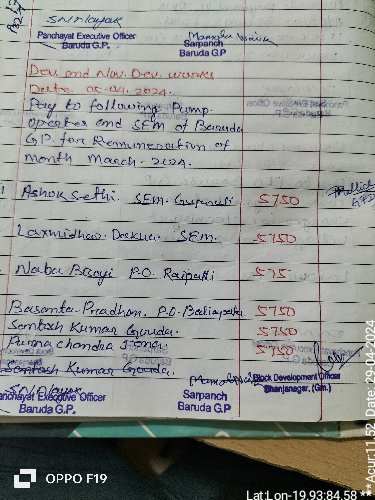 S.N. Nayak
Panchayat Executive Officer
Baruda G.P.
Sarpanch
Baruda G.P
Dev and Nov. Dev. works
Date 05.04.2024.
Pay to following Pump
operator and SEM of Baruda
G.P. for Remuneration of
month March-2024.
Ashok Sethi. SEM. 5750
Laxmidhar Dakua SEM. 5750
Naba P.O. Raipalli 575
Basanta Pradhan. P.O. 5750
Santosh Kumar Gouda. 5750
Purna chandra Jena 5750
Santosh Kumar Gouda.
S.N. Nayak
Panchayat Executive Officer
Baruda G.P.
Sarpanch
Baruda G.P
Block Development Officer
Bhanjanagar, (Gm.)
OPPO F19
Lat:Lon-19.93:84.58
***Acur:11.52 Date 29-04-2024